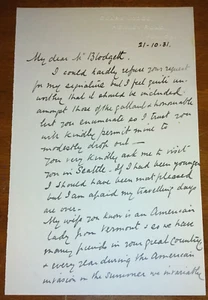 21-10-31.
My dear Mr Blodgett.
I could hardly refuse your request
for my signature but I feel quite un-
worthy that it should be included
amongst those of the gallant & honourable
list you enumerate so I trust you
will kindly permit mine to
modestly drop out —
You very kindly ask me to visit
you in Seattle. If I had been younger
I should have been most pleased
but I am afraid my travelling days
are over.
My wife you know is an American
lady from Vermont & as we have
many friends in your great Country
& every year during the American
invasion in the summer we invariably